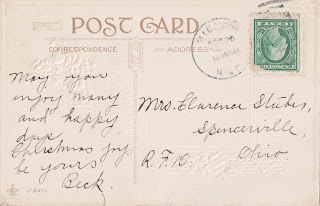 POST CARD
CORRESPONDENCE
ADDRESS
May you
enjoy many
and happy
days
Christmas joy
be yours
Beck.
Mrs. Clarence Stubes,
Spencerville,
Ohio
R.F.D.